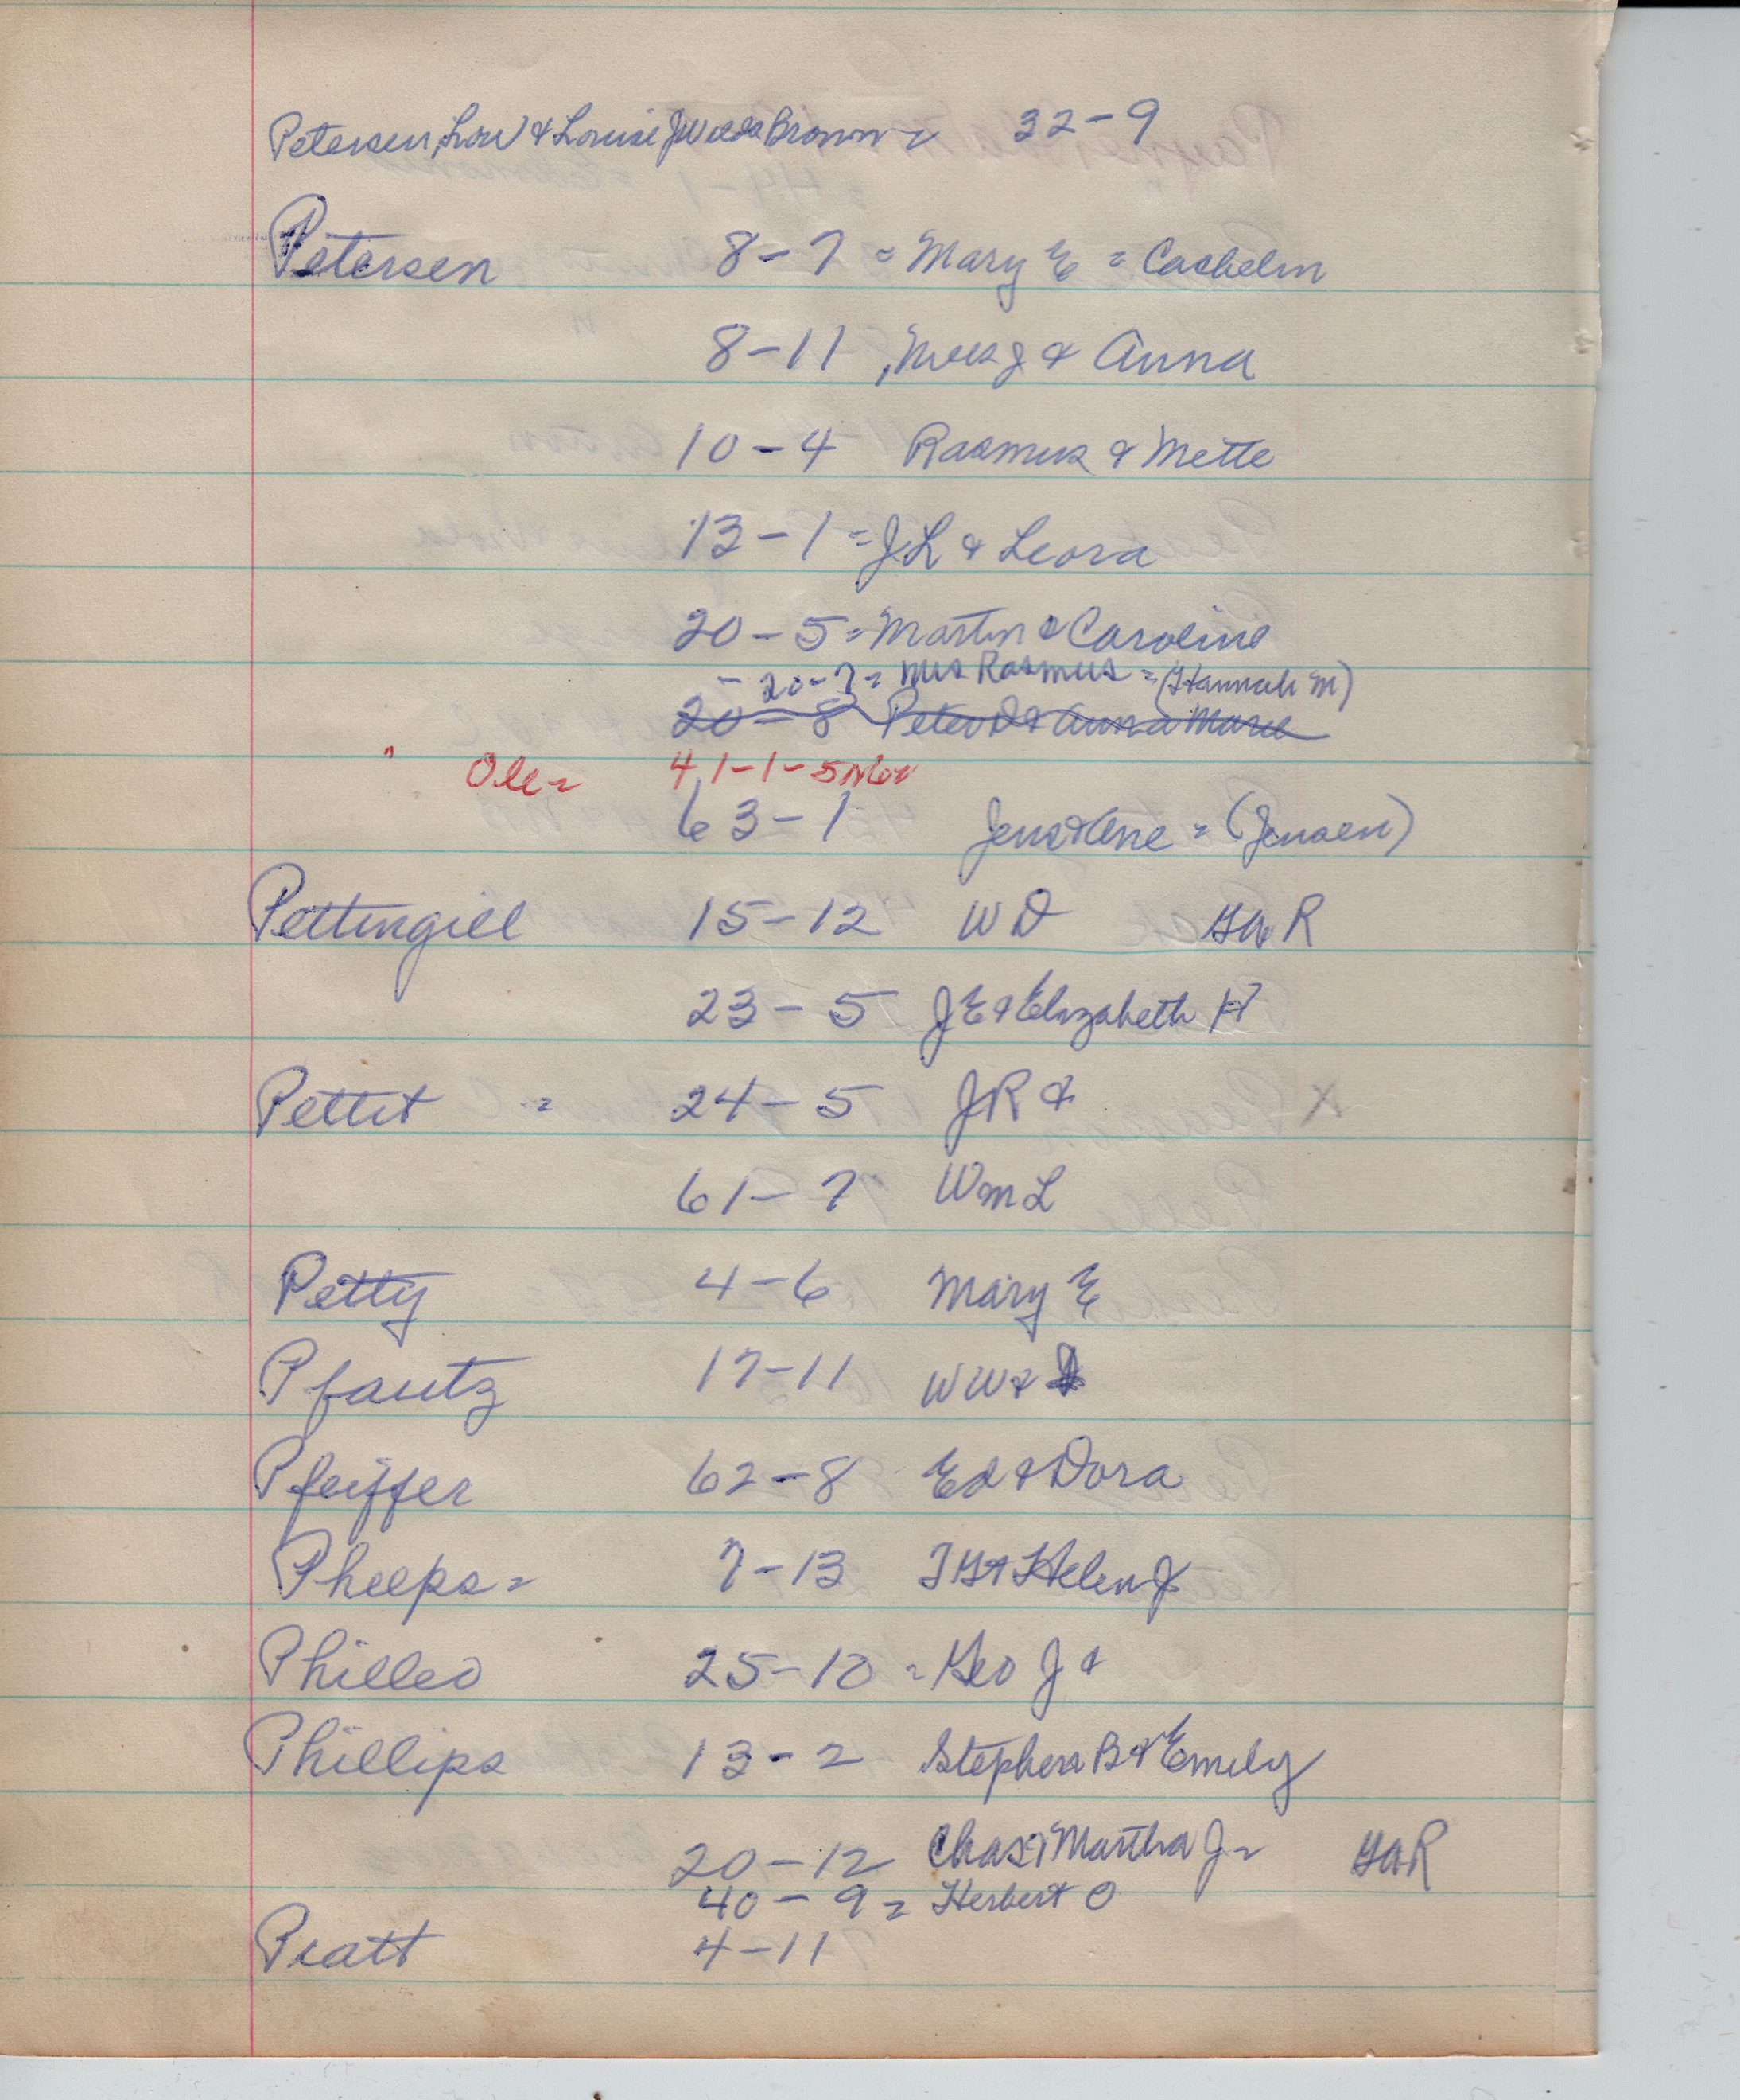 Petersen, Lou & Louise Brown = 32-9
Petersen 8-7 = Mary E = Cachelin
8-11, Niels J & Anna
10-4 Rasmus & Mette
13-1 = JL & Leora
20-5 = Martin & Caroline
- 20-7 = Mrs Rasmus = (Hannah M)
20-8 Peter D & Anna Marie
" Ole = 41-1-5
63-1 Jens & Ane = (Jensen)
Pettingill 15-12 WD GAR
23-5 JE & Elizabeth H
Pettit = 24-5 JR &
61-7 Wm L
Petty 4-6 Mary E
Pfautz 17-11 WW &
Pfeiffer 62-8 Ed & Dora
Phelps = 7-13 & Helen J
Philleo 25-10 = Geo J &
Phillips 13-2 Stephen B & Emily
20-12 Chas & Martha J = GAR
40-9 = Herbert O
Pratt 4-11